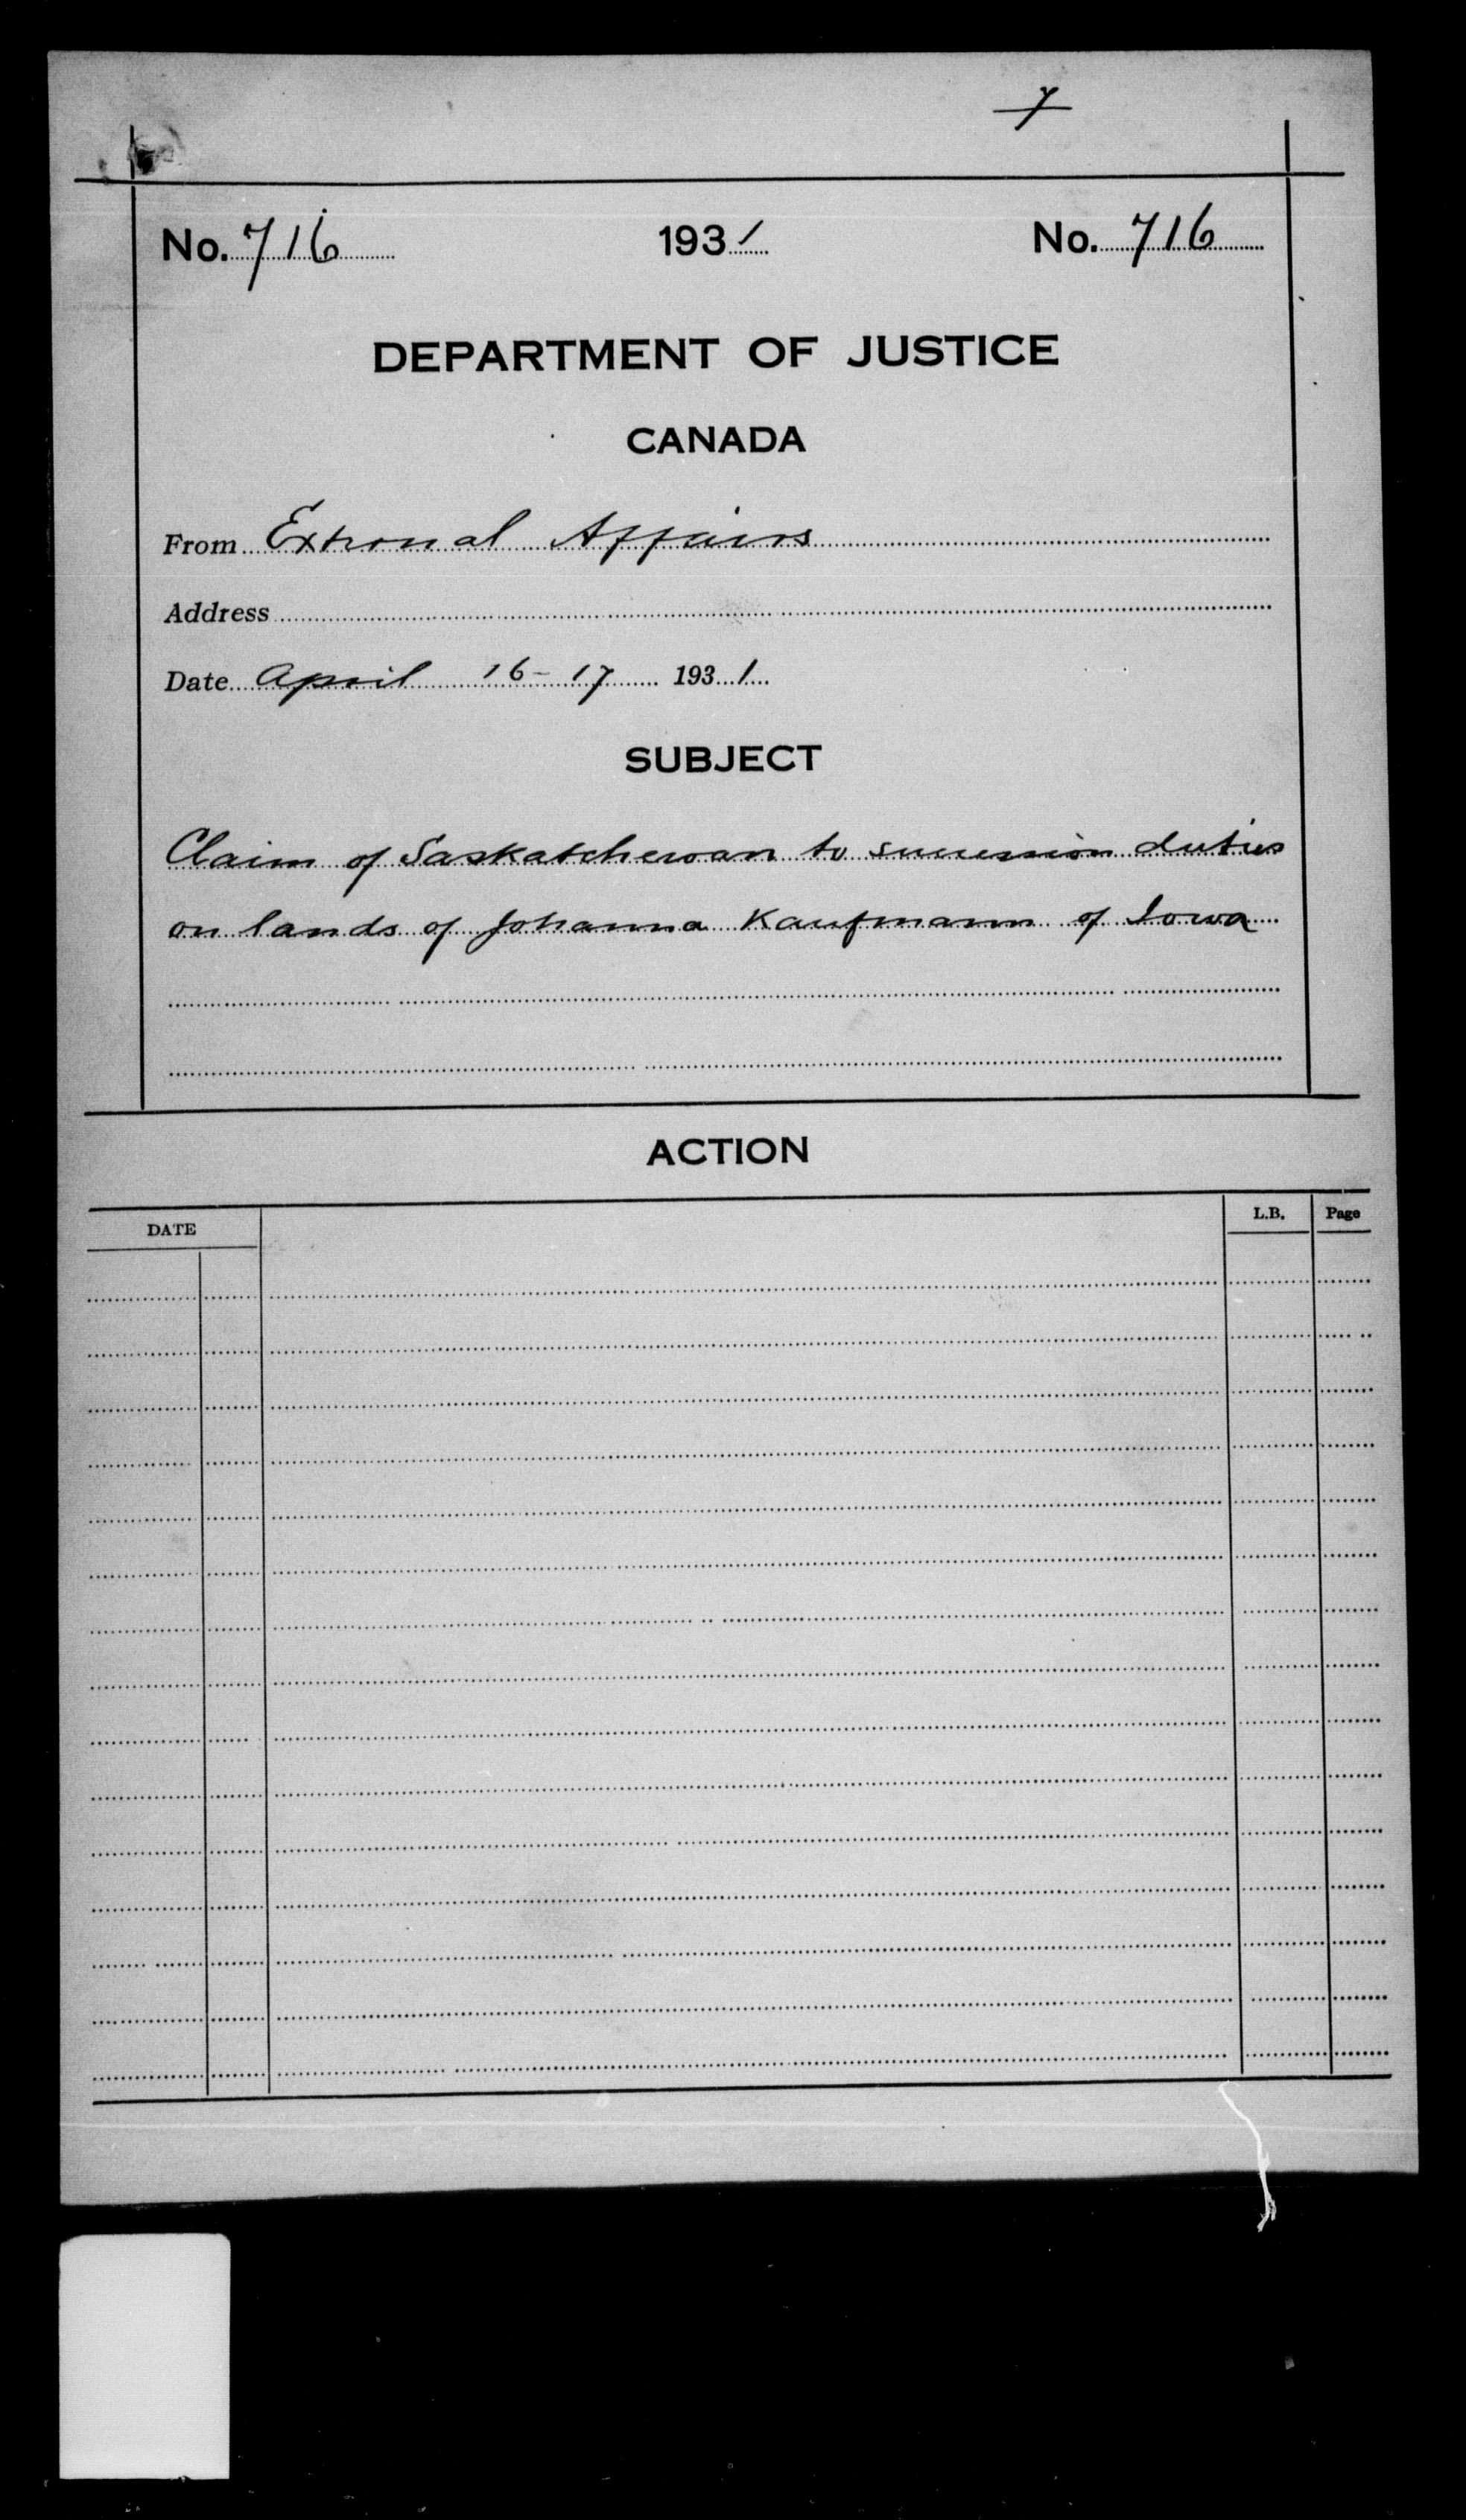 7
No. 716 1931 No. 716
DEPARTMENT OF JUSTICE
CANADA
From External Affairs
Address
Date April 16-17 1931
SUBJECT
Claim of Saskatchewan to succession duties
on lands of Johanna Kaufmann of Iowa
ACTION
DATE L.B. Page